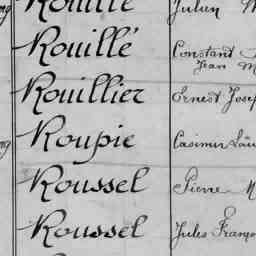 Rouillé Julien
Rouillé Constant
Jean M
Rouillier Ernest Josep
Roupie Casimir Loui
Roussel Pierre M
Roussel Jules Franço